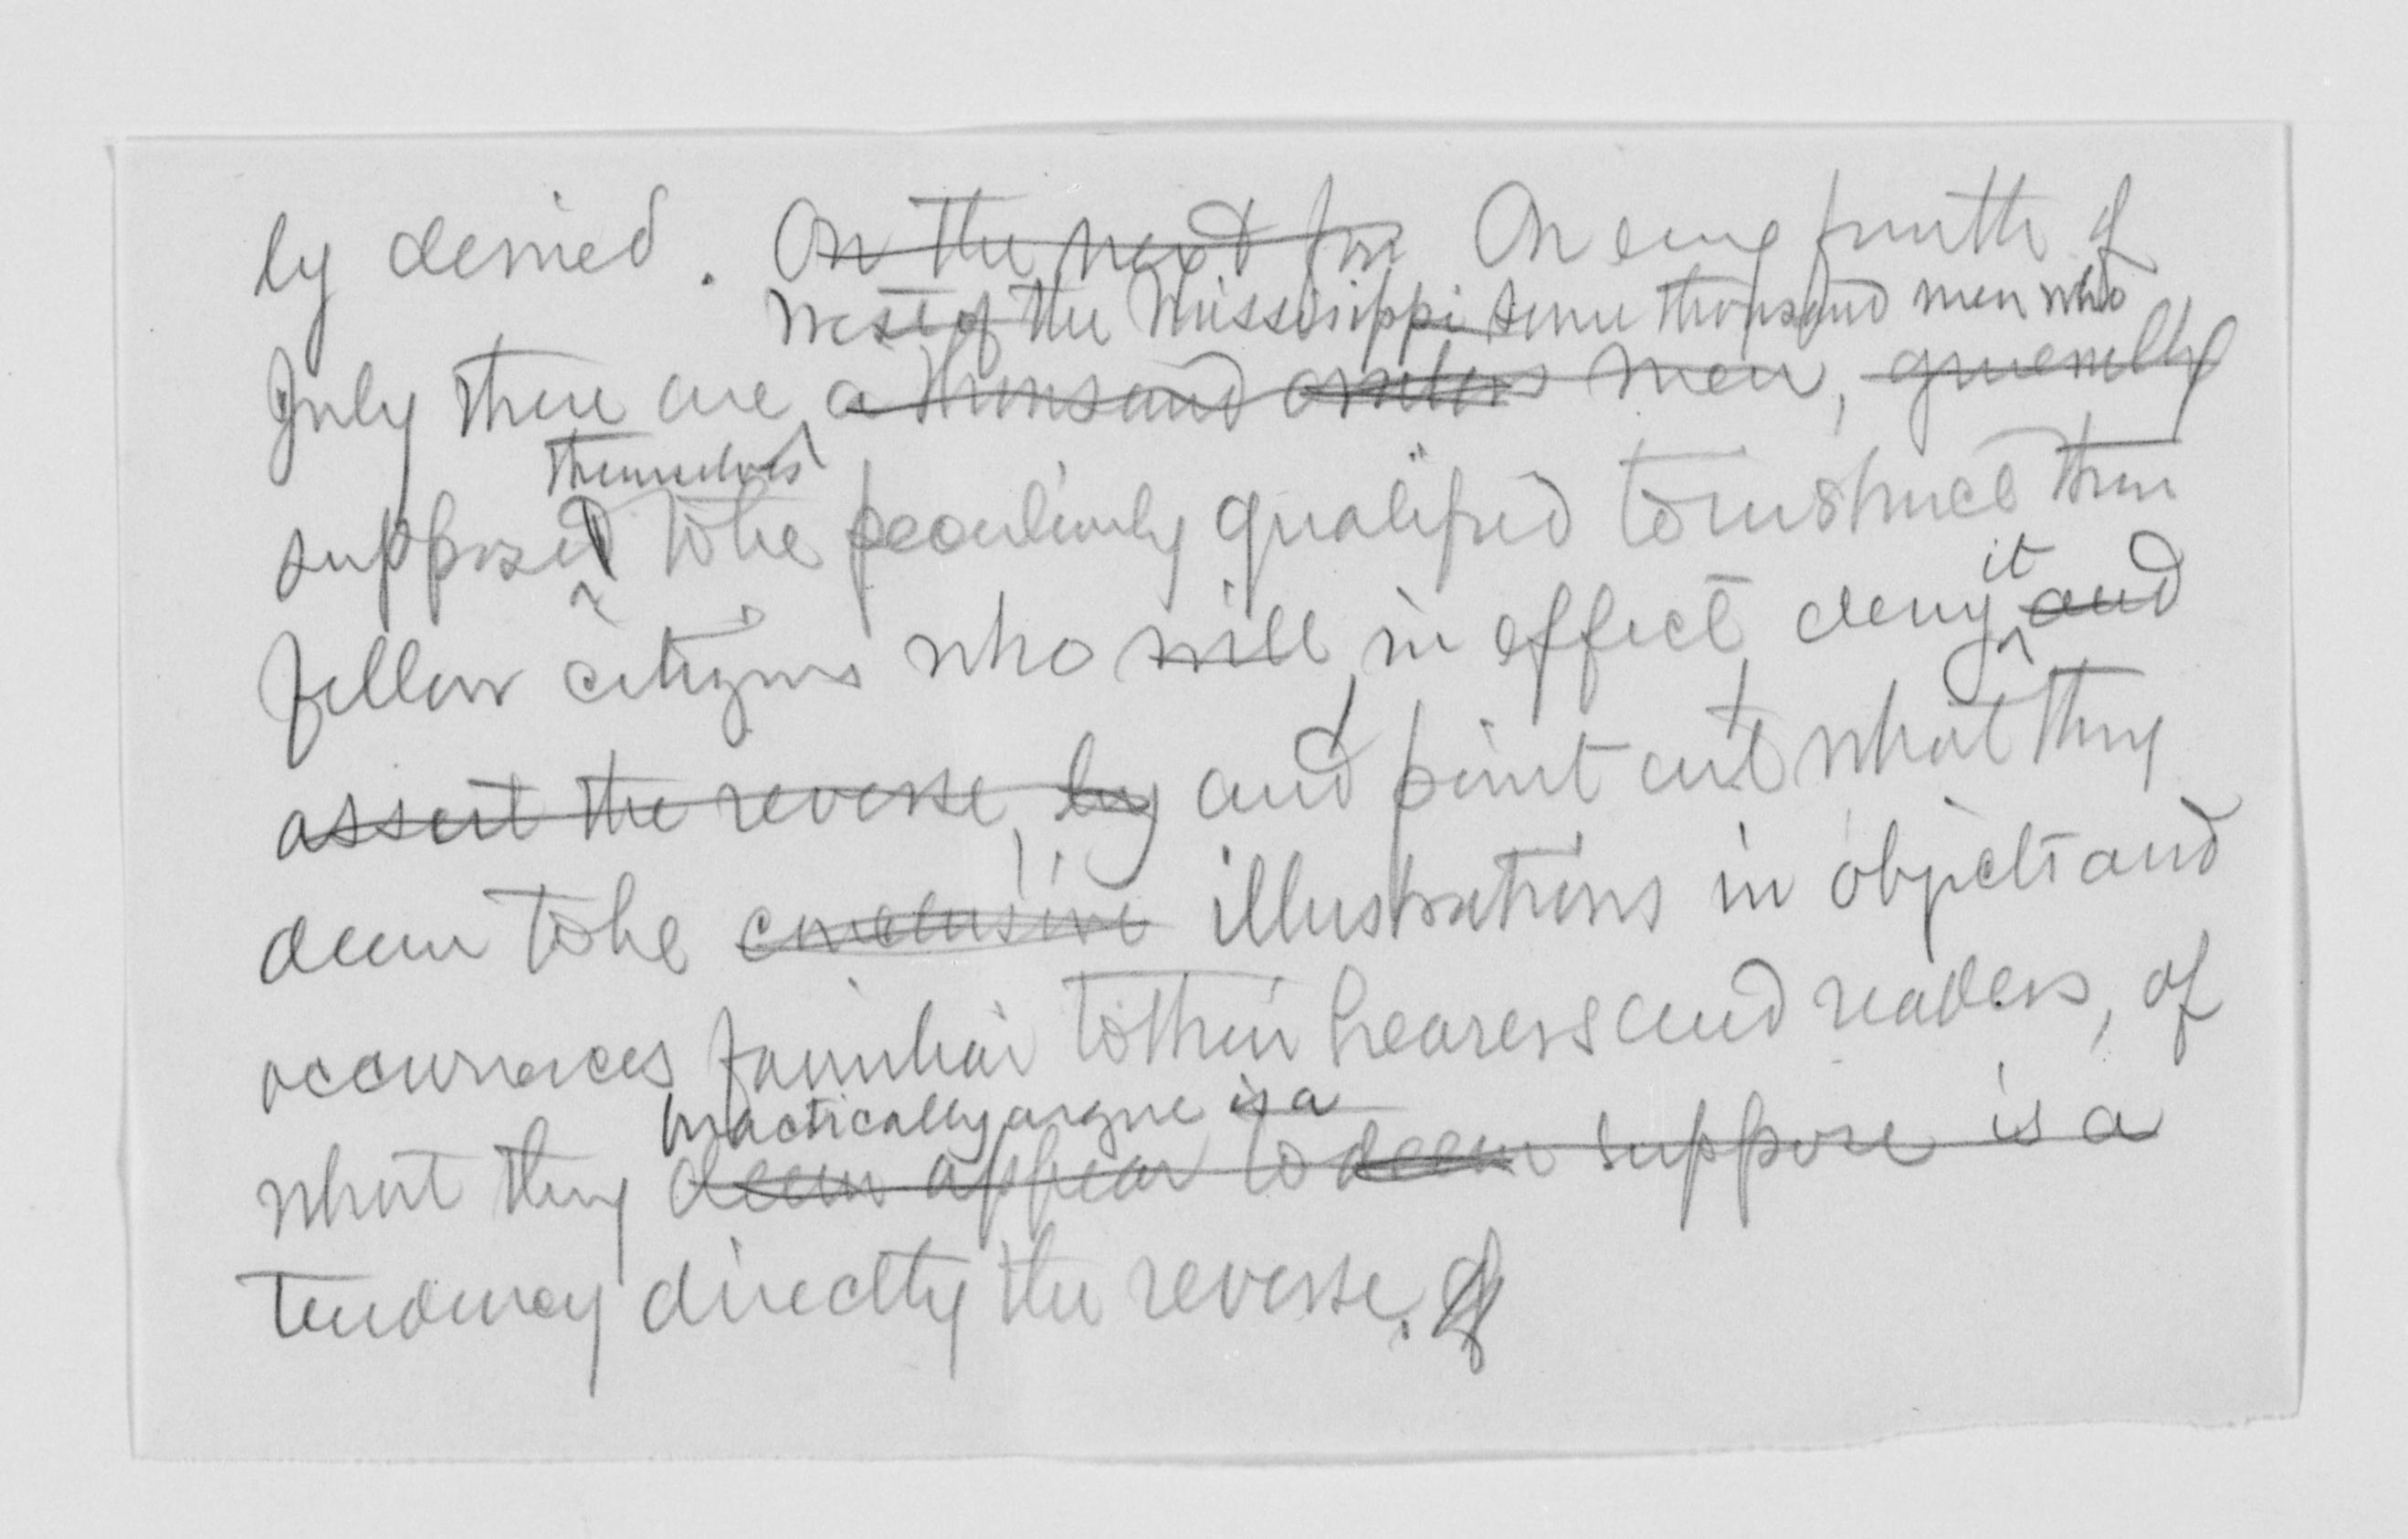 ly denied. On the next fou On every fourth of
West of the Mississippi some thousand men who
July there are a thousand orators men, generally
themselves
supposed to be peculiarly qualified to instruct their
it
fellow citizens who will, in effect, deny and
assert the reverse, by and point out what they
deem to be conclusive illustrations in objects and
occurrences familiar to their hearers and readers, of
practically argue is a
what they deem appear to deem suppose is a
tendency directly the reverse. of